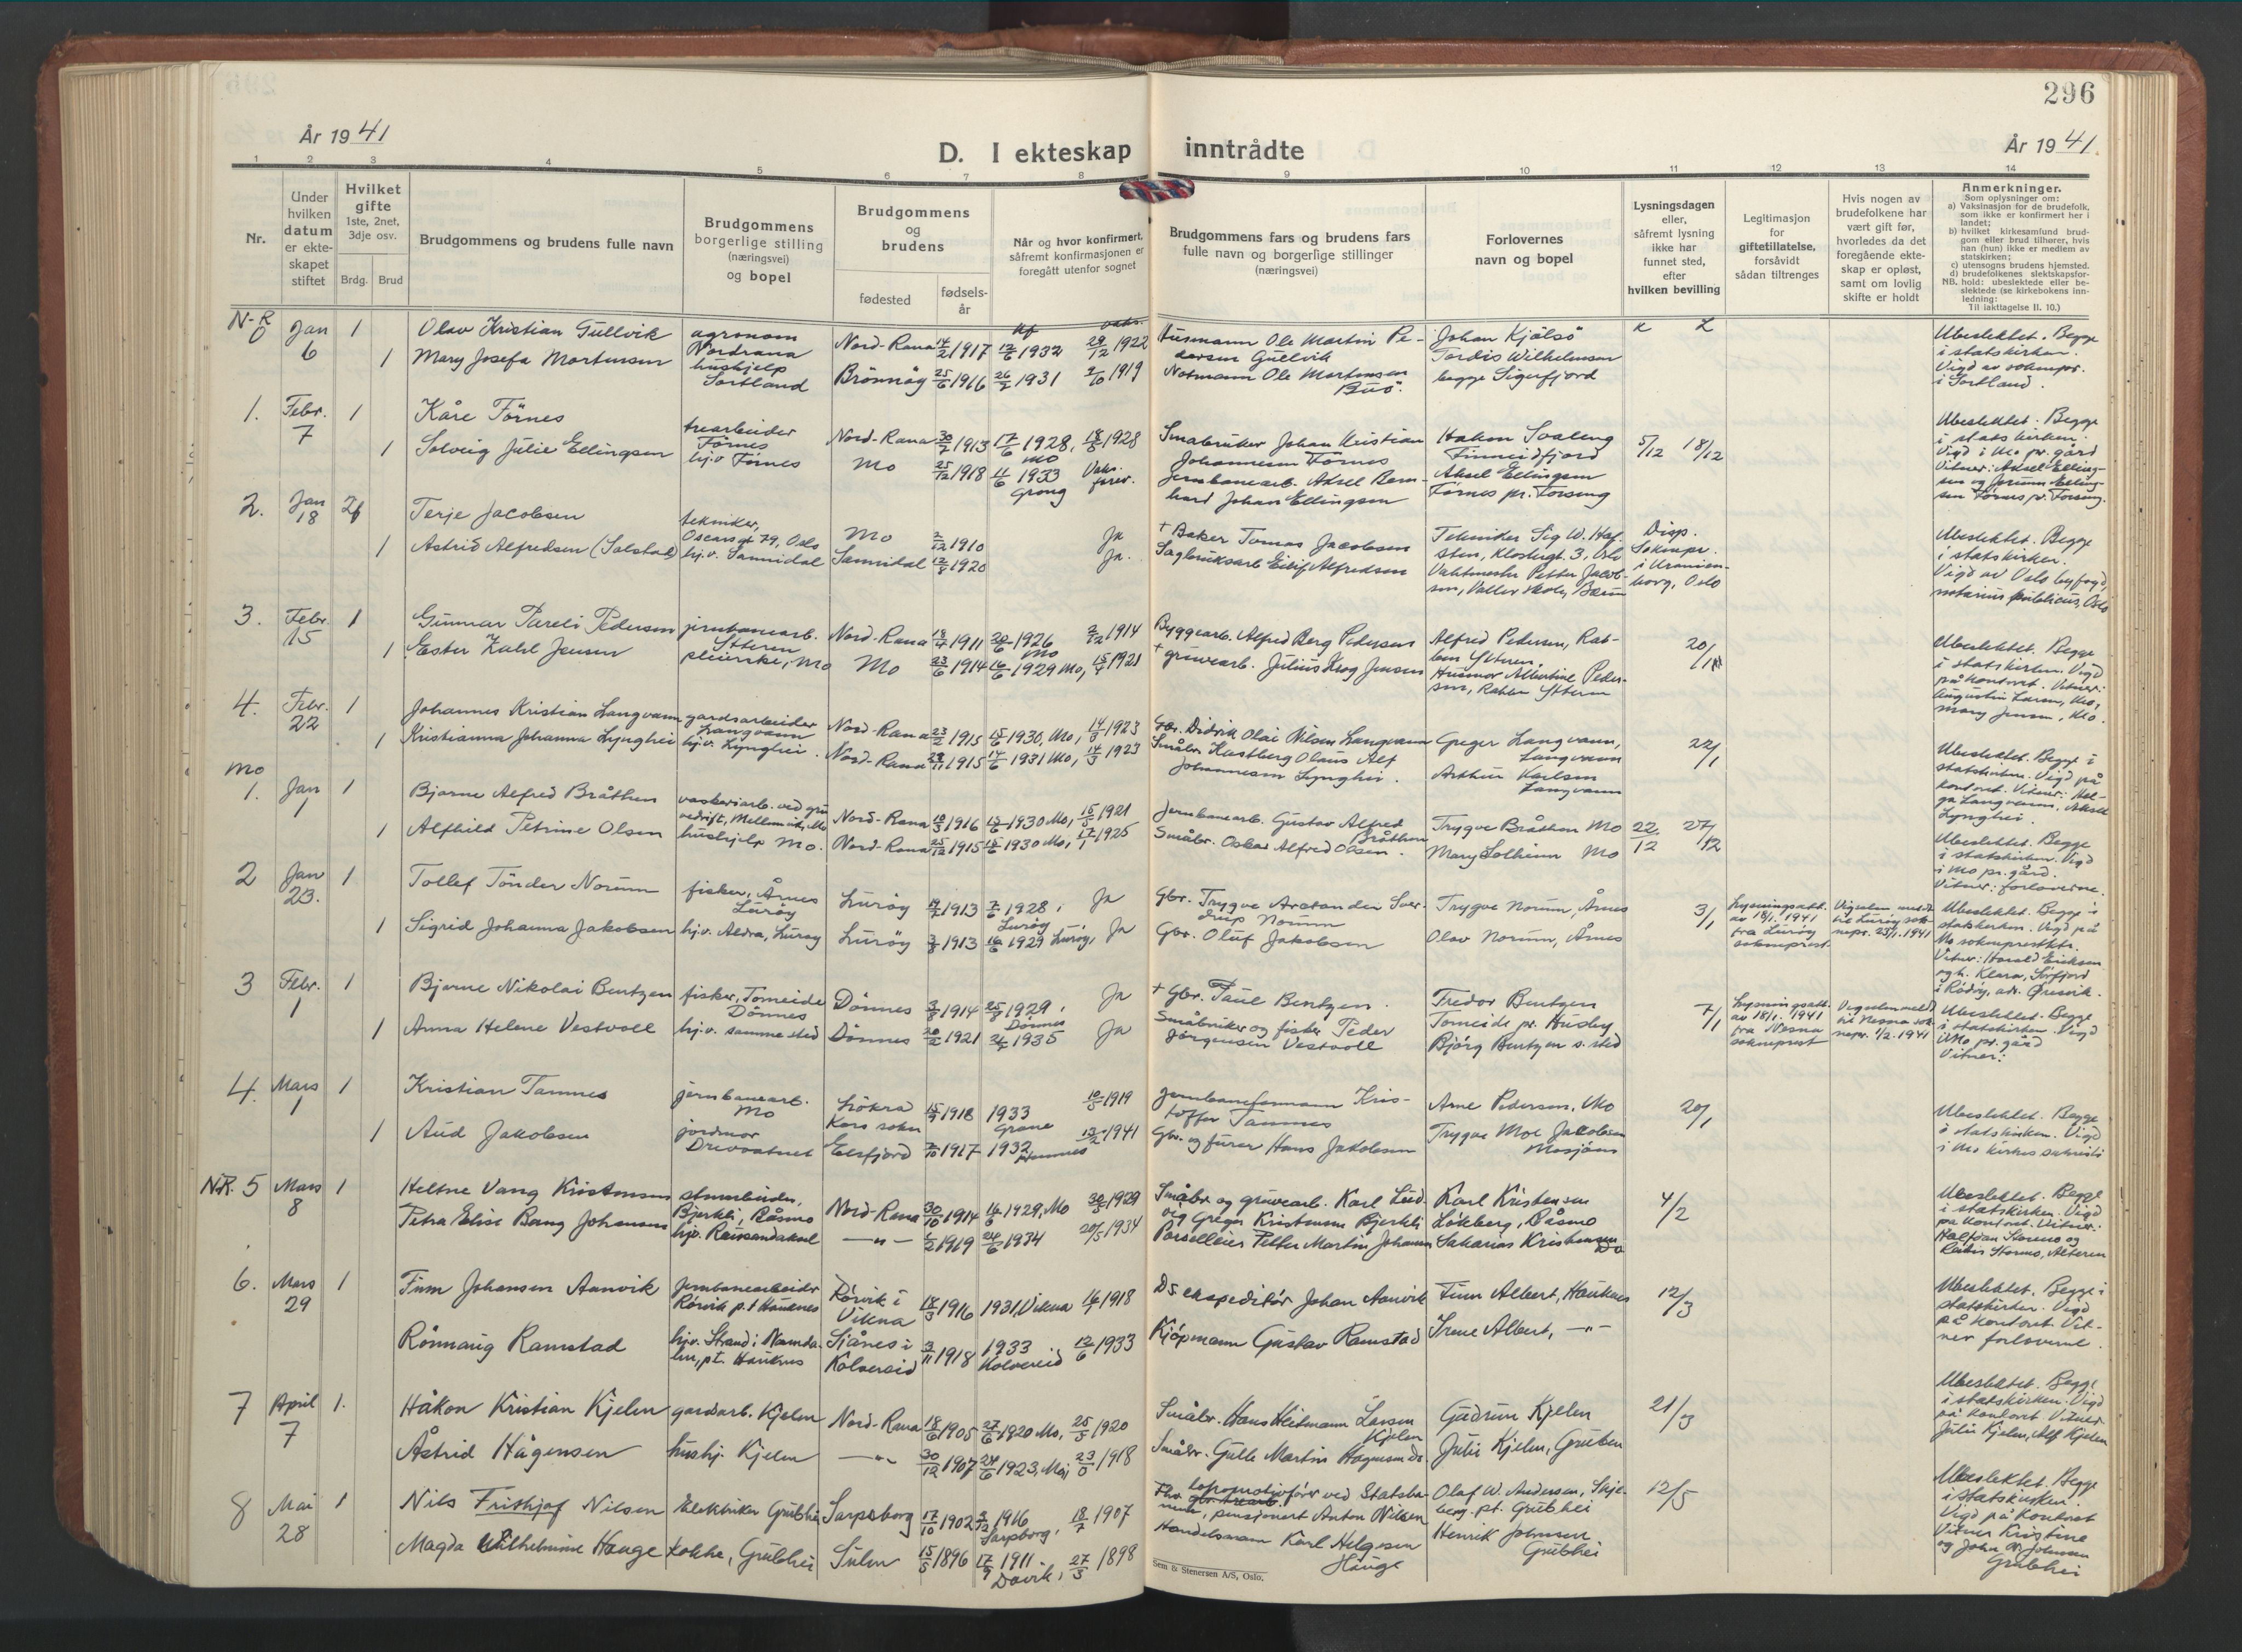 296
År 1941
D. I ekteskap inntrådte
År 1941.
1 2 3 4 5 6 7 8 9 10 11 12 13 14
Nr.
Under
hvilken
datum
er ekte-
skapet
stiftet
Hvilket
gifte
1ste, 2net,
3dje osv.
Brdg. Brud
Brudgommens og brudens fulle navn
Brudgommens
borgerlige stilling
(næringsvei)
og bopel
Brudgommens
og
brudens
fødested
fødsels-
år
Når og hvor konfirmert,
såfremt konfirmasjonen er
foregått utenfor sognet
Brudgommens fars og brudens fars
fulle navn og borgerlige stillinger
(næringsvei)
Forlovernes
navn og bopel
Lysningsdagen
eller,
såfremt lysning
ikke har
funnet sted,
efter
hvilken bevilling
Legitimasjon
for
giftetillatelse,
forsåvidt
sådan tiltrenges
Hvis nogen av
brudefolkene har
vært gift før,
hvorledes da det
foregående ekte-
skap er opløst,
samt om lovlig
skifte er holdt
Anmerkninger.
Som oplysninger om:
a) Vaksinasjon for de brudefolk,
som ikke er konfirmert her i
landet;
b) hvilket kirkesamfund brud-
gom eller brud tilhører, hvis
han (hun) ikke er medlem av
statskirken;
c) utensogns brudens hjemsted.
d) brudefolkenes slektskapsfor-
NB. hold: ubeslektede eller be-
slektede (se kirkebokens inn-
ledning:
Til iakttagelse II. 10.)
N-R
0 Jan 6 1 Olav Kristian Gullvik agronom Nordrana Nord-Rana 14/2 1917 12/6 1932 29/12 1922 Husmann Ole Martin Pe-
dersen Gullvik Johan Kjølsø
1 Mary Josefa Mortensen hushjelp Sortland Brønnøy 25/6 1916 26/7 1931 2/10 1919 Notmann Ole Mortensen
Buø. Tordis Wilhelmsen
begge Sigerfjord
Ubeslektet. Begge
i statskirken.
Vigd av soknepr.
i Sortland.
1. Febr. 7 1 Kåre Förnes trearbeider Förnes Nord-Rana 30/7 1913 17/6 1928, Mo 18/5 1928 Småbruker Johan Kristian
Johannesen Förnes Hakon Svaleng
Finneidfjord 5/12 18/12
1 Solveig Julie Ellingsen hj.v Förnes Mo 25/12 1918 11/6 1933 Grong Vaks. Jernbanearb. Aksel Bern-
hard Johan Ellingsen Aksel Ellingsen
Förnes pr. Forsmo
Ubeslektet. Begge
i statskirken.
Vigd i Mo pr. gård
Vitner: Aksel Elling-
sen og Jorunn Elling-
sen Förnes pr. Forsmo.
2. Jan 18 Terje Jacobsen tekniker,
Oscarsgt 79, Oslo Mo 2/12 1910 Ja † Baker Tomas Jacobsen Tekniker Sig W. Haf-
sten, Klostergt. 3, Oslo Disp.
Soknepr.
i Uranien-
borg, Oslo
1 Astrid Alfredsen (Solstad) hj.v. Sannidal Sannidal 12/8 1920 Ja. Sagbruksarb Eilif Alfredsen Vaktmester Petter Jacob-
sen, Valler skole, Bærum
Ubeslektet. Begge
i statskirken.
Vigd av Oslo byfogd,
notarius publicus, Oslo
3. Febr 15 1 Gunnar Pareli Pedersen jernbanearb.
Ytteren Nord-Rana 18/4 1911 20/6 1926 Mo 2/12 1914 Byggearb. Alfred Berg Pedersen Alfred Pedersen,
Ytteren,
1 Ester Kahl Jensen pleierske, Mo Mo 23/6 1914 16/6 1929 Mo, 15/4 1921 † gruvearb. Julius Krog Jensen Husmor Albertine Peder-
sen, Ytteren
Ubeslektet. Begge
i statskirken. Vigd
på kontoret. Vitner:
Augustin Larsen, Mo,
Mary Jensen, Mo.
4. Febr. 22 1 Johannes Kristian Langvann gardsarbeider
Langvann Nord-Rana 23/2 1915 15/6 1930, Mo, 14/9 1923 Gbr. Didrik Olai Nilsen Langvann Greger Langvann,
Langvann 22/1
1 Kristianna Johanna Lynghei hj.v. Lynghei. Nord-Rana 29/11 1915 14/6 1931 Mo, 14/9 1923 Småbr. Olaus Alf
Johannesen Lynghei. Arthur Karlsen
Langvann
Ubeslektet. Begge i
statskirken. Vigd på
kontoret. Vitner: Hel-
ga Langvann, Aksel
Lynghei.
Mo
1. Jan 1 1 Bjarne Alfred Bråthen vaskeriarb. ved gru-
vedrift, Mellomvik, Mo Nord-Rana 10/3 1916 15/6 1930 Mo, 15/5 1921 Jernbanearb. Gustav Alfred
Bråthen Trygve Bråthen Mo 22/12 27/12
1 Alfhild Petrine Olsen hushjelp Mo. Nord-Rana 25/12 1915 15/6 1930 Mo, 17/1 1925 Småbr. Oskar Alfred Olsen. Mary Solheim Mo
Ubeslektet. Begge
i statskirken. Vigd
i Mo pr. gård.
Vitner: forloverne.
2 Jan 23. 1 Tollef Tönder Norum fisker, Årnes
Lurøy Lurøy 1913 7/6 1928, Lurøy Ja Gbr. Trygve Sver-
drup Norum Trygve Norum, Årnes 3/1 Lysningsatt.
av 18/1. 1941
fra Lurøy
sokneprest Vigselen meldt
til Lurøy sok-
nepr. 25/1. 1941
1 Sigrid Johanna Jakobsen hj.v. Aldra, Lurøy Lurøy 3/8 1913 16/6 1929 Lurøy, Ja Gbr. Oluf Jakobsen Olav Norum, Årnes
Ubeslektet. Begge i
statskirken. Vigd på
Mo sokneprestktr.
Vitner: Harald Eriksen
og h. Klara, Sörfjord
i Rödöy, adr. Øresvik.
3 Febr. 1 1 Bjarne Nikolai Bentzen fisker, Tomeide
Dönnes Dönnes 3/8 1914 25/8 1929, Dönnes Ja † Gbr. Paul Bentzen. Fredor Bentzen
Tomeide pr. Husby 7/1 Lysningsatt.
av 18/1. 1941
fra Nesna
sokneprest Vigselen meldt
til Nesna sok-
nepr. 1/2. 1941
1 Anna Helene Vestvoll hj.v. samme sted Dönnes 1921 1935 Ja Småbruker og fisker Peder
Jörgensen Vestvoll Björg Bentzen s. sted
Ubeslektet. Begge
i statskirken. Vigd
i Mo pr. gård
Vitner:
4. Mars 1 1 Kristian Tamnes jernbanearb.
Mo
Kors sokn 15/9 1918 1933
Grane 10/5 1919 Jernbaneformann Kris-
toffer Tamnes Arne Pedersen, Mo 20/1
1 Aud Jakobsen jordmor
Drevvatnet Elsfjord 1917 1932
Hemnes 13/2 1941 Gbr. og fører Hans Jakobsen Trygve Moe Jakobsen
Mosjøen
Ubeslektet. Begge
i statskirken. Vigd
i Mo kirkes sakristi
N.R. 5 Mars 8 1 Heltne Vang Kristensen
Bjerkli, Råsmo Nord-Rana 30/10 1914 16/6 1929, Mo 30/5 1929 Småbr. og gruvearb. Karl Lud-
vig Greger Kristensen Bjerkli Karl Kristensen
Lökberg, Råsmo 4/2
Petra Elise Bang Johansen hjv. Rausandaksel —"— 1919 24/6 1934 20/5 1934 Parselleier Petter Martin Johansen Sakarias Kristensen Do
Ubeslektet. Begge
i statskirken. Vigd
på kontoret. Vitner:
Halfdan Stormo og
Stormo, Alteren
6. Mars 29 1 Finn Johansen Aanvik Jernbanearbeider
Rörvik p.t Hauknes Rörvik i
Vikna 18/3 1916 1931, Vikna 16/7 1918 DS ekspeditör Johan Aanvik Finn Albert, Hauknes 12/3
Rönnaug Ramstad hjv. Strand i Namda-
len, pt. Hauknes Sjånes i
Kolvereid 3/11 1918 1933
Kolvereid 12/6 1933 Kjöpmann Gustav Ramstad Irene Albert, —"—
Ubeslektet. Begge i
statskirken. Vigd
på kontoret Vit-
ner forloverne.
7 April 7 1. Håkon Kristian Kjelen gardsarb. Kjelen Nord-Rana 18/6 1905 27/6 1920 Mo, 25/5 1920 Småbr. Hans Heitmann Larsen
Kjelen Gudrun Kjelen 21/3
Åstrid Hågensen hushj. Kjelen —"— 30/12 1907 24/6 1923, Mo, 1918 Småbr. Gulle Martin Hagensen Do Julie Kjelen, Gruben
Ubeslektet. Begge
i statskirken. Vigd
på kontoret Vitner
Julie Kjelen, Alf Kjelen
8 Mai 28 1 Nils Fritjhof Nilsen Elektriker Grubhei Sarpsborg 17/10 1902 1916
Sarpborg, 18/7 1907 lokomotivförer ved Statsba-
nene, pensjonert Anton Nilsen Olaf W. Andersen, Skje-
berg, pt. Grubhei 12/5
Magda Wilhelmine Hauge kokke, Grubhei Sulen 15/5 1896 17/9 1911.
Davik, 27/3 1898 Handelsmann Karl Helgesen
Hauge Henrik Johnsen
Grubhei
Ubeslektet. Begge
i statskirken.
Vigd på kontoret
Vitner Kristine
og John Johnsen
Grubhei
Sem & Stenersen A/S, Oslo.